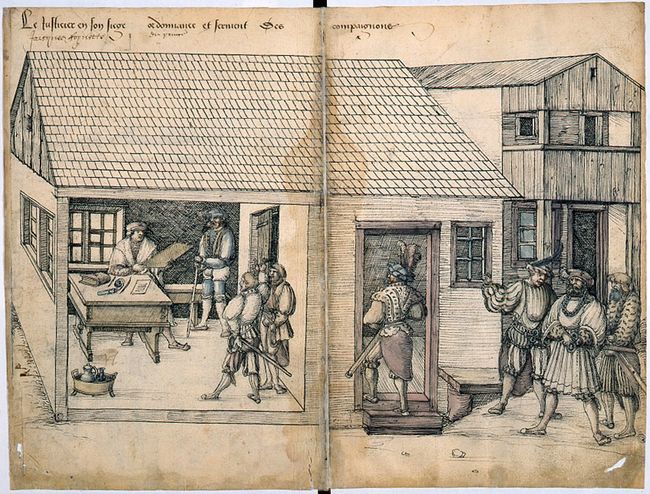 Le Justicier en son siege ordonnance et serment Des compaignons